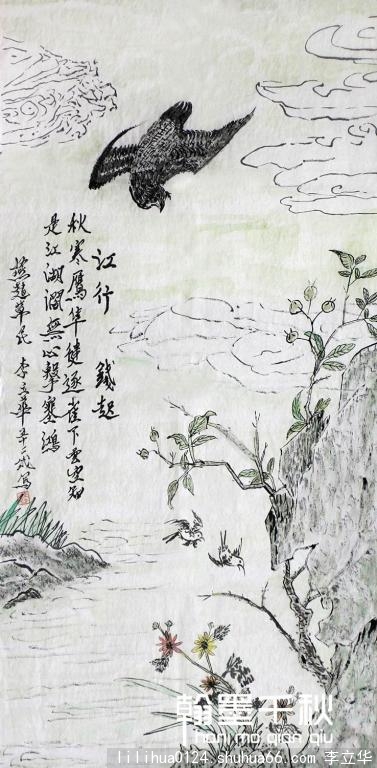 江行 錢起
秋寒鷹隼健逐雀下雲空知
是江湖闊無心擊塞鴻
燕趙草民 李立華五十二歲寫
翰墨千秋
han mo qian qiu
lilihua0124.shuhua66.com 李立华